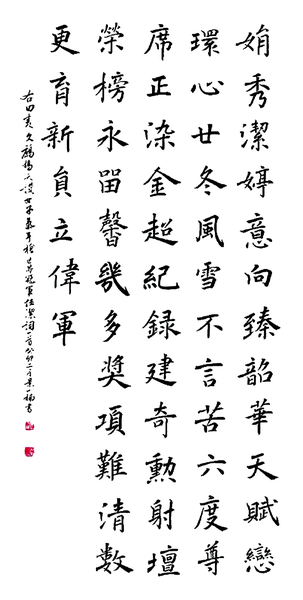 娟秀潔婷意向臻韶華天賦戀
環心廿冬風雪不言苦六度尊
席正染金超紀録建奇勳射壇
榮榜永留馨幾多獎項難清數
更育新員立偉軍